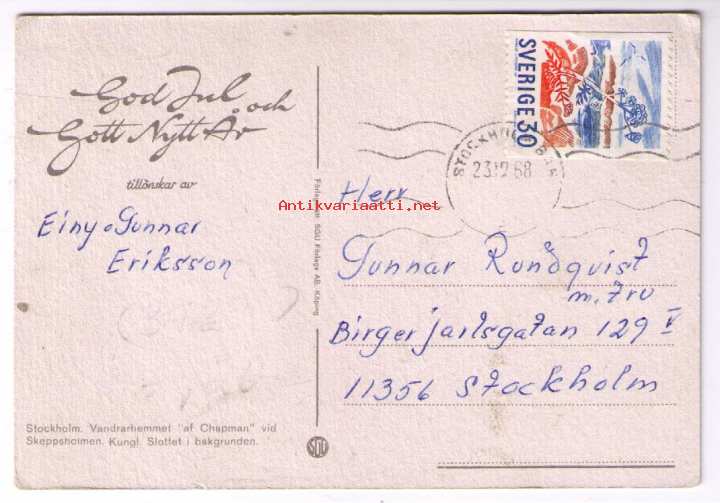 God Jul och
Gott Nytt År
tillönskar av
Einy o Gunnar
Eriksson
Stockholm. Vandrarhemmet "af Chapman" vid
Skeppsholmen. Kungl. Slottet i bakgrunden.
Förlags AB, Köping
SVERIGE 30
23.12.68
Antikvariaatti.net
Herr
Gunnar Rundqvist
m. Fru
Birger jarlsgatan 129 V
11356 Stockholm